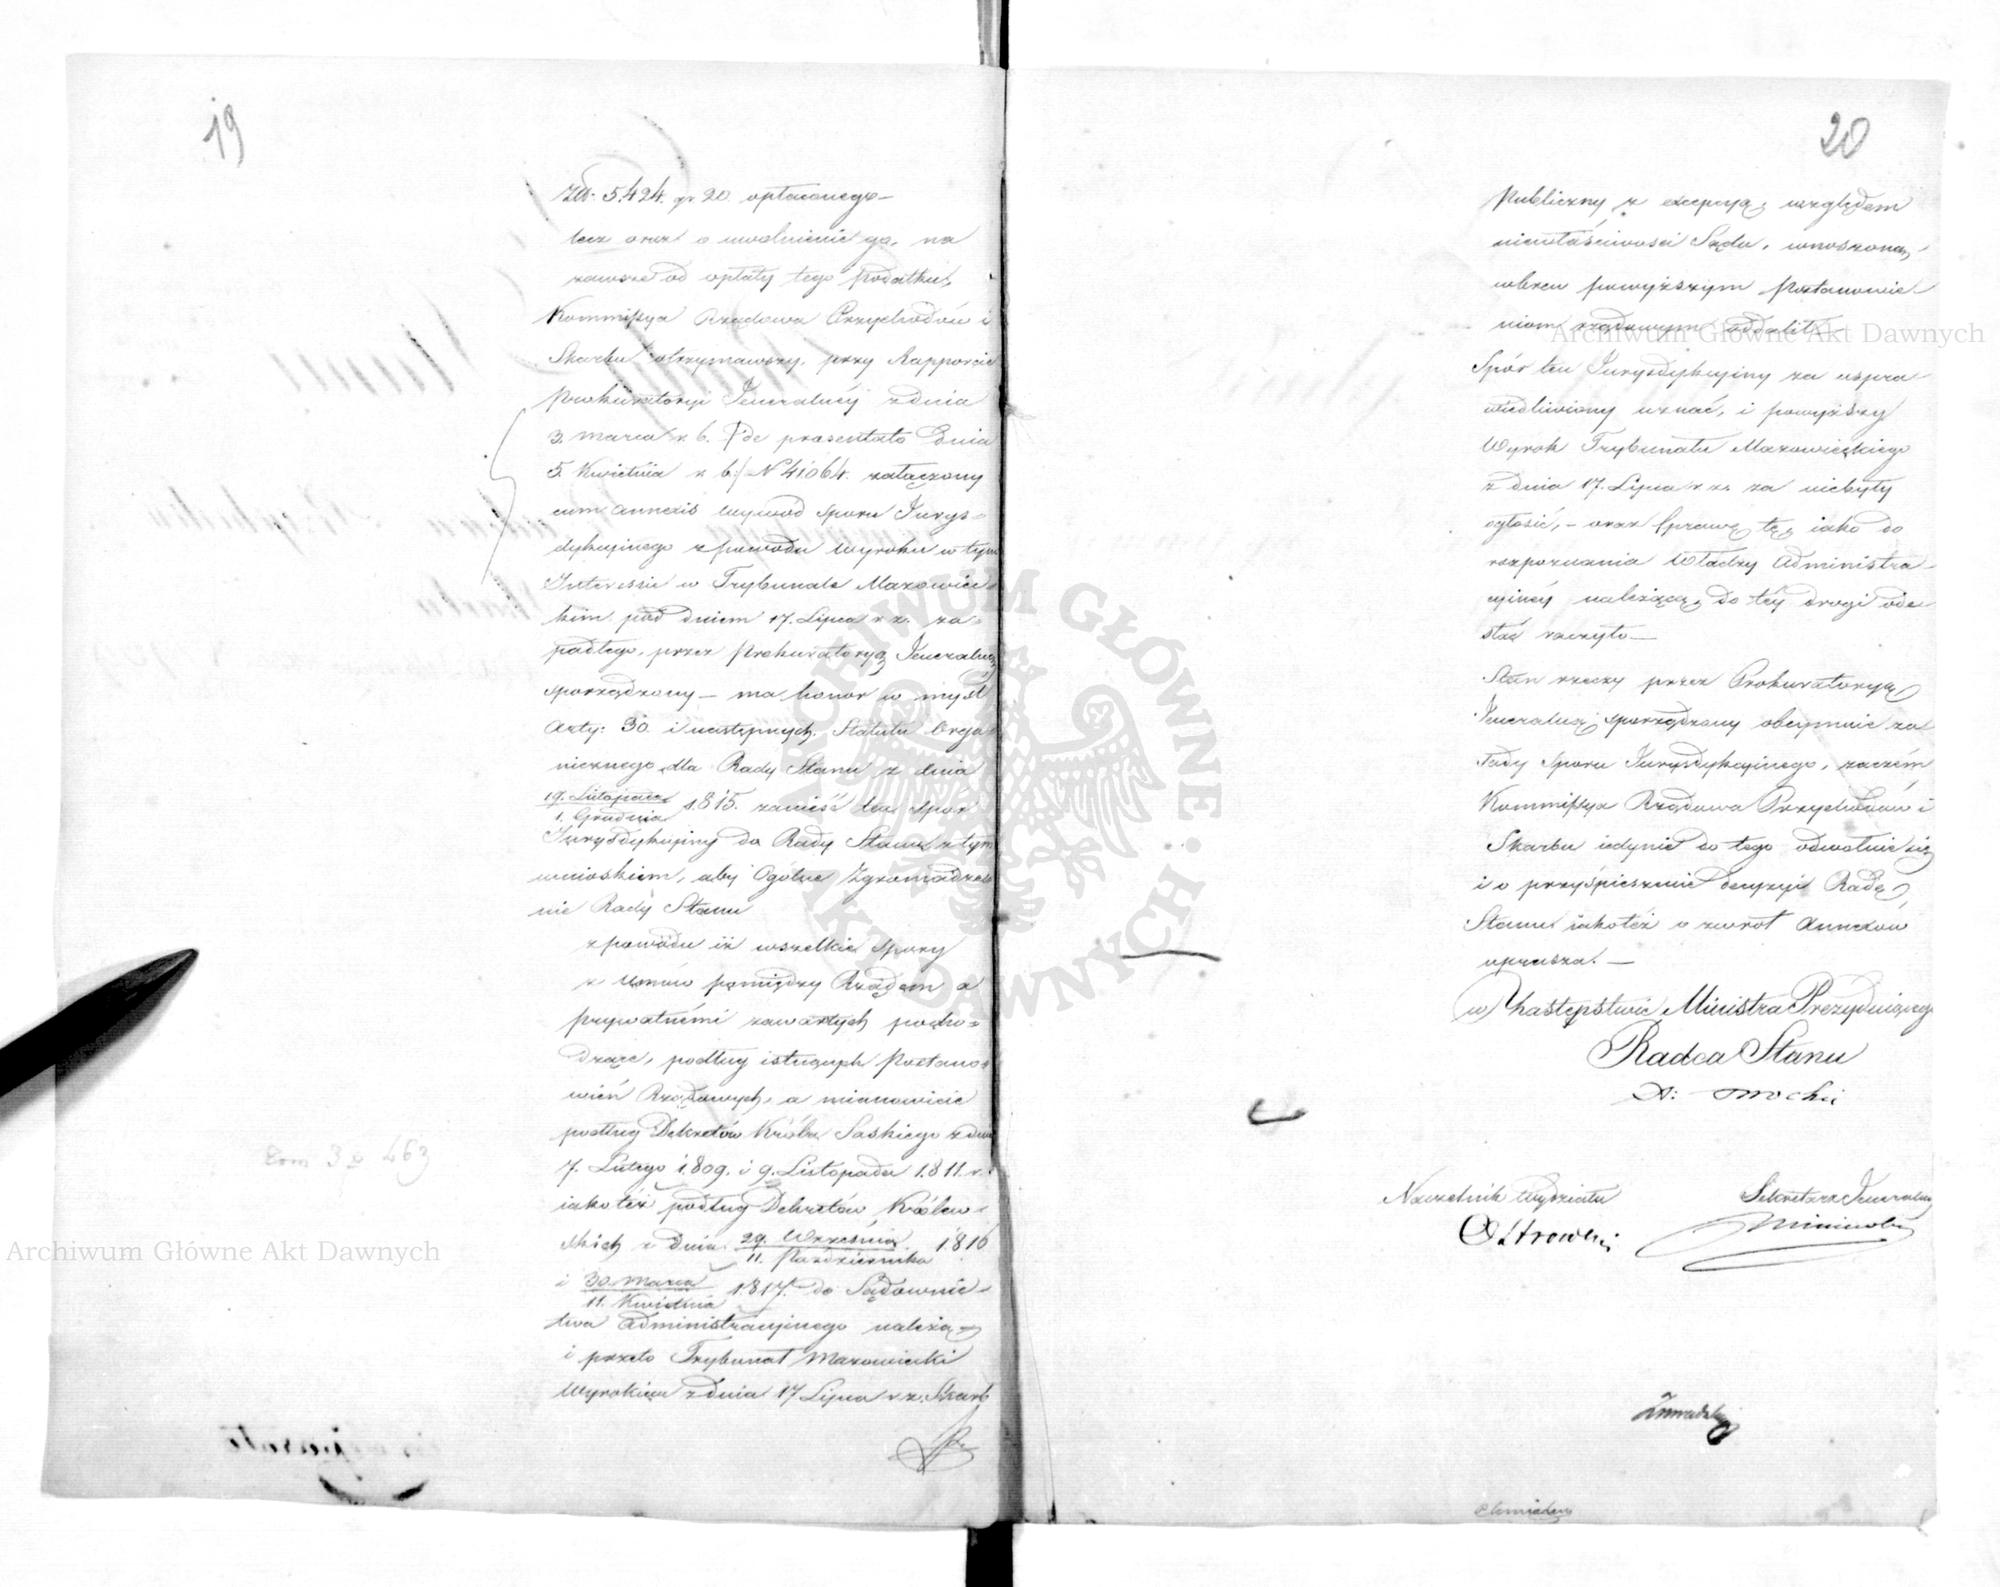 19
Złt: 5,424. gr. 20. opłaconego—
tecz oraz o uwolnienie go, na
zawsze od opłaty tego podatku,
Kommissya Rządowa Przychodów i
Skarbu otrzymawszy, przy Rapporcie
Prokuratoryi Jeneralnéy z dnia
3. Marca r. b. /: de praesentato Dnia
5. Kwietnia r. b :/ N 41064. załączony
cum annexis wywód Sporu Jurys-
dykcyinego z powodu Wyroku w tym
Interessie w Trybunale Mazowiec-
kim pod dniem 17. Lipca r. z. za-
padłego, przez Prokuratoryą Jeneralną
sporządzony — ma honor w myśl
Arty: 30. i następnych, Statutu Orga-
nicznego dla Rady Stanu z dnia
19. Listopada / 1. Grudnia 1815. zanieść ten Spór
Jurysdykcyiny do Rady Stanu z tym
wnioskiem, aby Ogólne Zgromadze-
nie Rady Stanu
z powodu iż wszelkie Spory
z Umów pomiędzy Rządem a
prywatnémi zawartych pocho-
dzące, podług istnących Postano-
wień Rządowych, a mianowicie
podług Dekretów Króla Saskiego z dnia
7. Lutego 1809. i 9. Listopada 1811. r.
iako też podług Dekretów Królew-
skich z dnia 29. Września / 11. Października 1816
i 30. Marca / 11. Kwietnia 1817. do Sądownic-
twa Administracyinego należą—
i przeto Trybunał Mazowiecki
Wyrokiem z dnia 17 Lipca r. z. Skarb
Tom 3 463
20
Publiczny z excepcyą, względem
niewłaściwości Sądu, wnoszoną,
wbrew powyższym Postanowie-
niom rządowym oddalił—
Spór ten Jurysdykcyiny za uspra-
wiedliwiony uznać, i powyższy
Wyrok Trybunału Mazowieckiego
z dnia 17. Lipca r. z. za niebyły
ogłosić, — oraz sprawę tę iako do
rozpoznania Władzy Administra-
cyinéy należącą, do téy drogi ode-
słać raczyło—
Stan rzeczy przez Prokuratoryą
Jeneralną sporządzony obeymuie za-
sady Sporu Jurysdykcyinego, zaczém
Kommissya Rządowa Przychodów i
Skarbu iedynie do tego odwołuie się
i o przyśpieszenie decyzyi Rady
Stanu iakotéż o zwrot Annexów
uprasza. —
w Zastępstwie Ministra Prezyduiącego
Radca Stanu
Naczelnik Wydziału
Sekretarz Jeneralny
Ostrowski
Archiwum Główne Akt Dawnych
Archiwum Główne Akt Dawnych
ARCHIWUM GŁÓWNE · AKT DAWNYCH ·